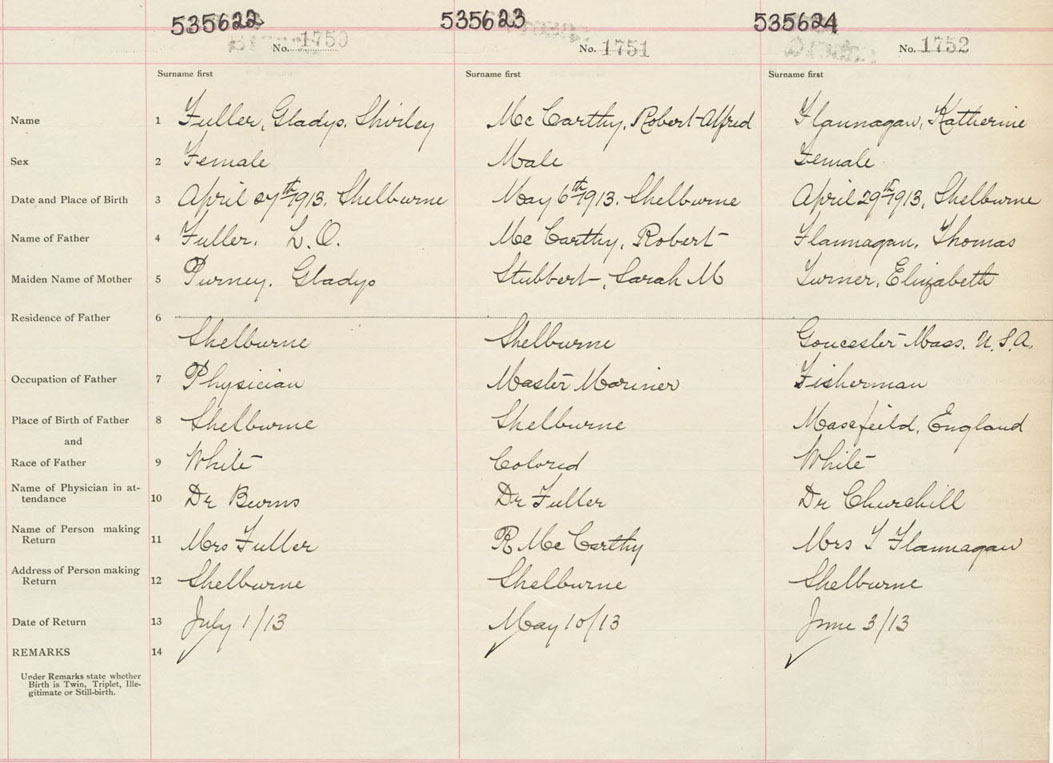 535622 535623 535624
No. 1750 No. 1751 No. 1752
Surname first Surname first Surname first
Name 1 Fuller, Gladys, Shirley Mc Carthy, Robert Alfred Flannagan, Katherine
Sex 2 Female Male Female
Date and Place of Birth 3 April 27th 1913, Shelburne May 6th 1913. Shelburne April 29th 1913, Shelburne
Name of Father 4 Fuller, L.O. Mc Carthy, Robert Flannagan, Thomas
Maiden Name of Mother 5 Purney, Gladys Stubbert, Sarah M Turner, Elizabeth
Residence of Father 6
Shelburne Shelburne Goucester Mass. U.S.A.
Occupation of Father 7 Physician Master Mariner Fisherman
Place of Birth of Father 8 Shelburne Shelburne Masefeild, England
and
Race of Father 9 White Colored White
Name of Physician in at-
tendance 10 Dr Burns Dr Fuller Dr Churchill
Name of Person making
Return 11 Mrs Fuller R Mc Carthy Mrs T Flannagan
Address of Person making
Return 12 Shelburne Shelburne Shelburne
Date of Return 13 July 1/13 May 10/13 June 3/13
REMARKS 14
Under Remarks state whether
Birth is Twin, Triplet, Ille-
gitimate or Still-birth.